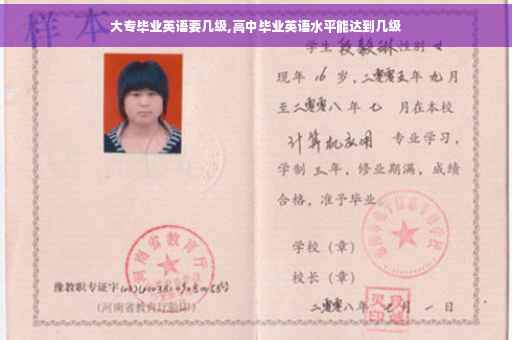 大专毕业英语要几级,高中毕业英语水平能达到几级
样本
学生段毅琳性别女
现年16岁,二零零五年九月
至二零零八年七月在本校
计算机应用 专业学习,
学制三年,修业期满,成绩
合格,准予毕业
学校(章)
校长(章)
二零零八年 月一日
河南省教育厅
豫教职专证字
(河南省教育厅验印)